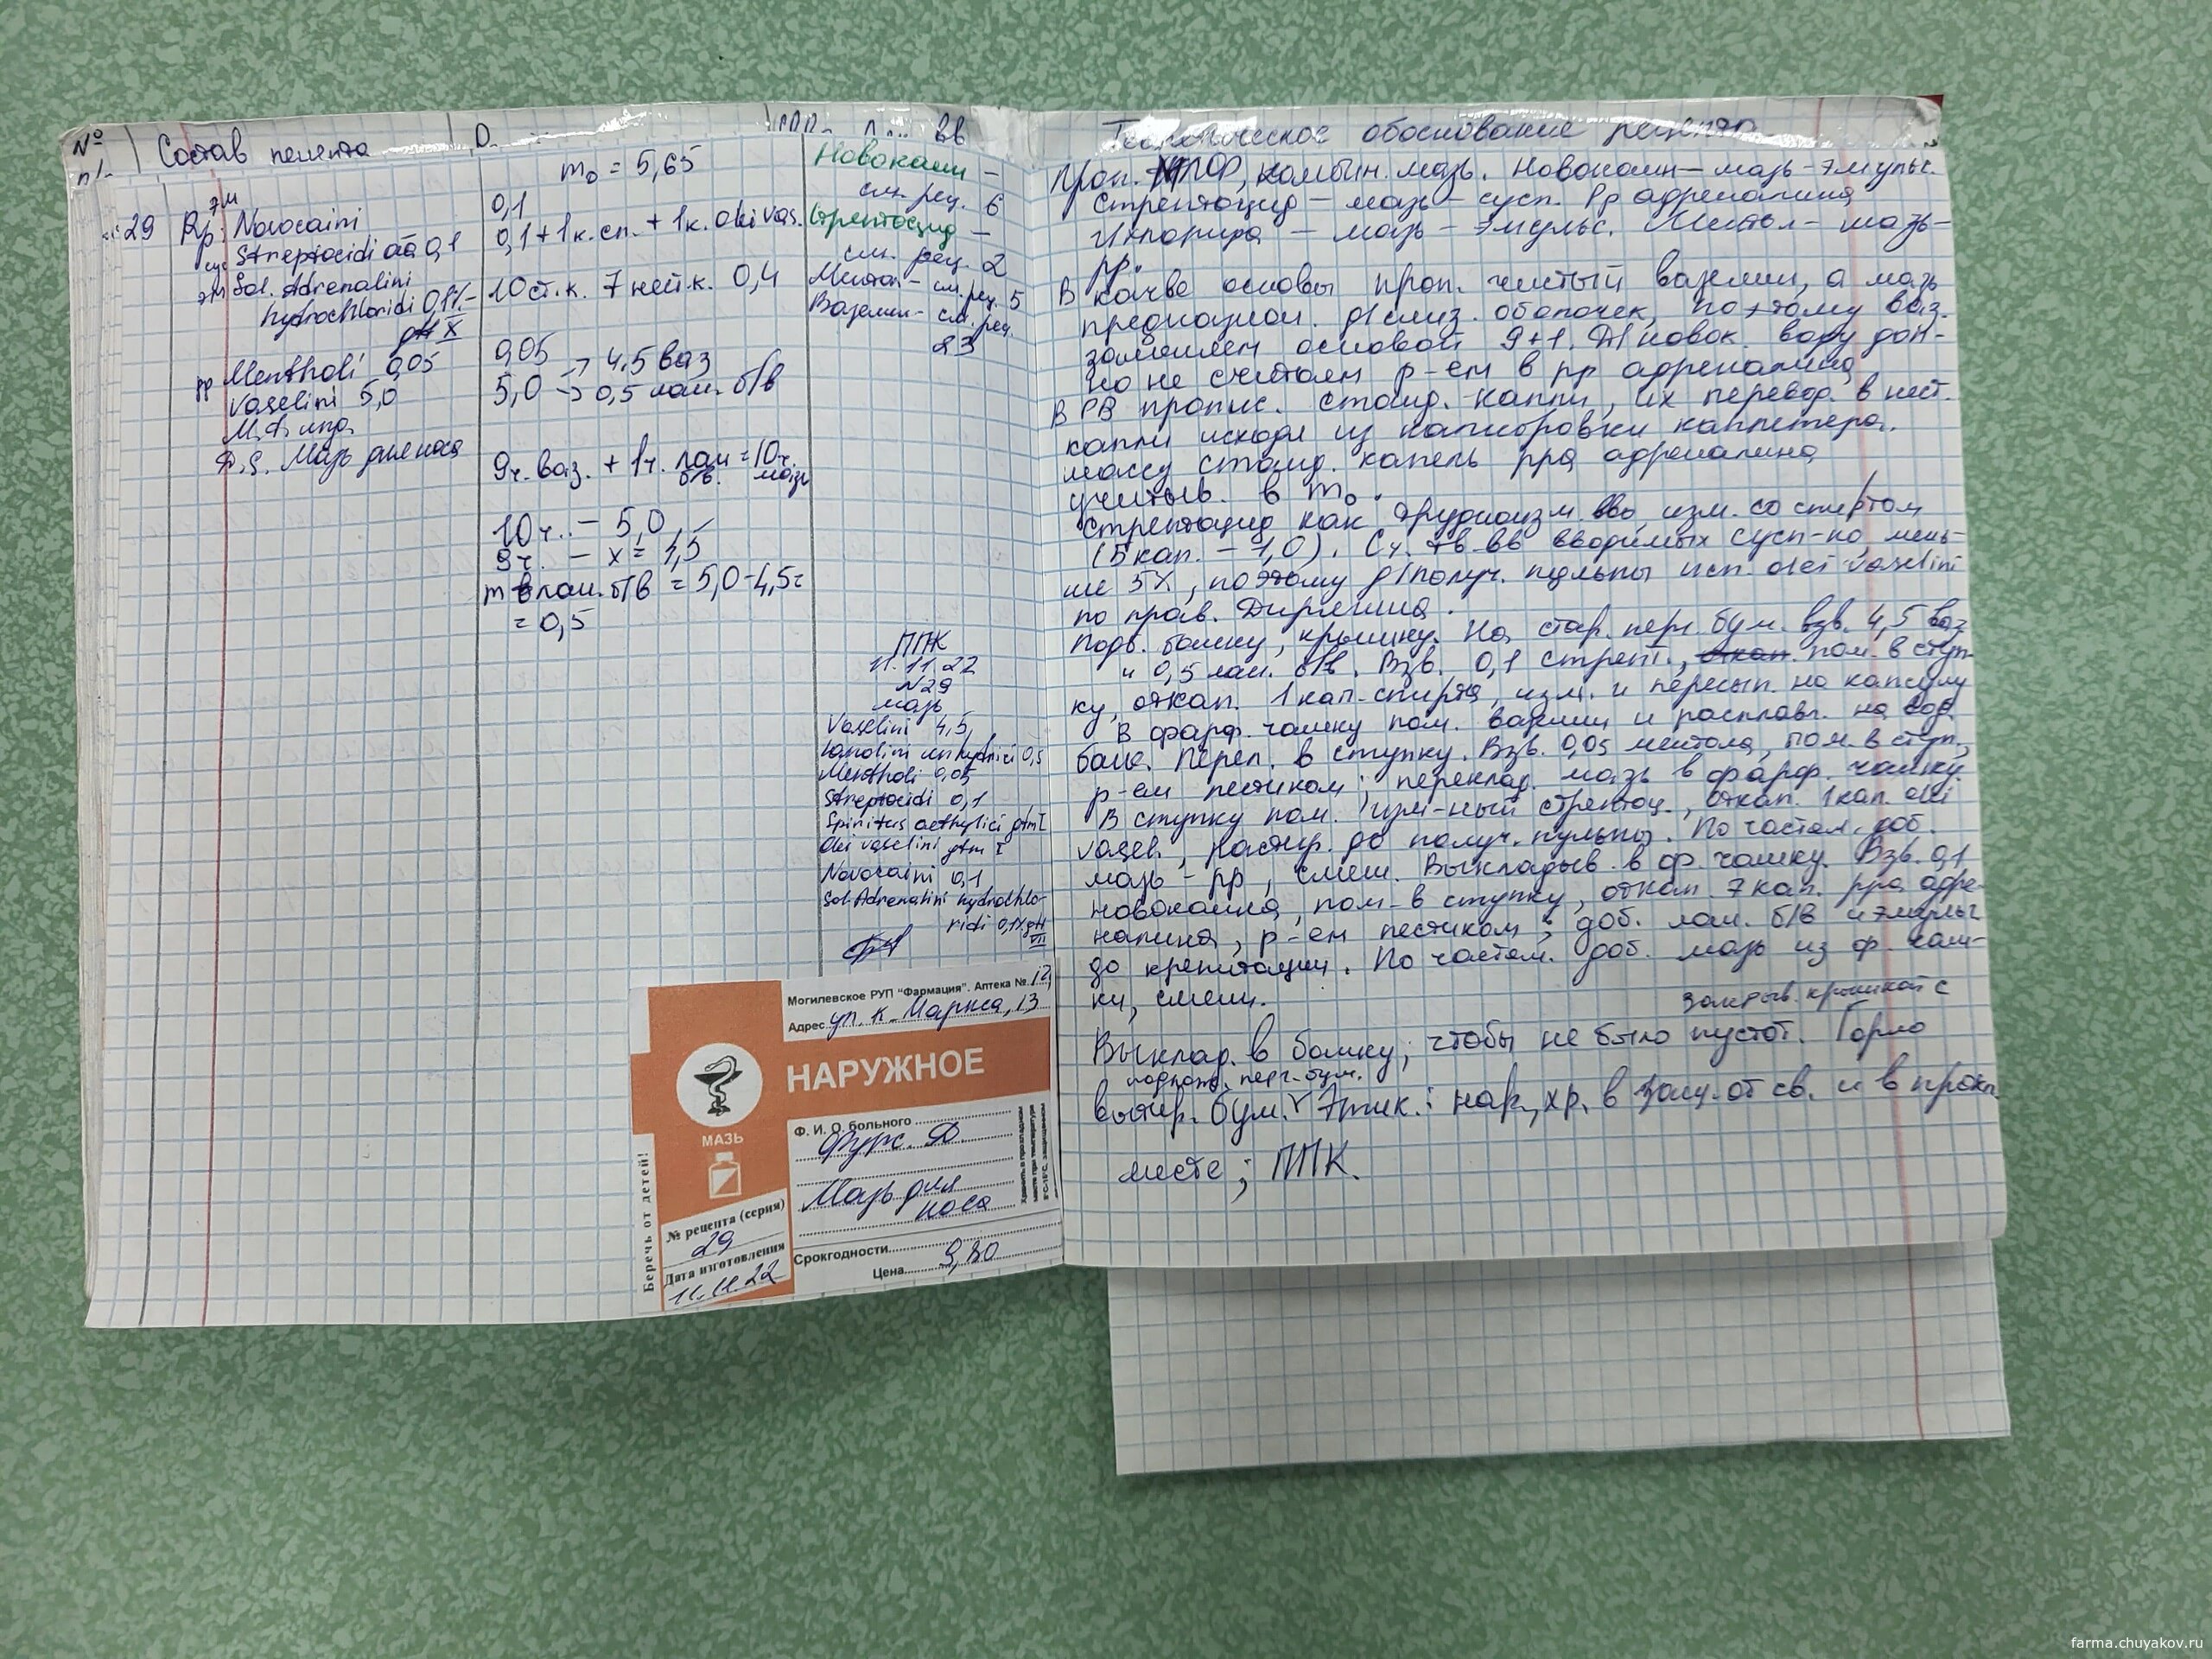 № п/п
Состав рецепта
вв
29
Rp: Novocaini
эм
Streptocidi āā 0,1
сус
Sol. Adrenalini
эм
hydrochloridi 0,1%-
gtt X
Mentholi 0,05
рр
Vaselini 5,0
M.f. ung.
D.S. Мазь для носа
m₀ = 5,65
0,1
0,1 + 1 к. сп. + 1 к. olei vas.
10 ст. к. 7 нест. к. 0,4
0,05
5,0 → 4,5 ваз
→ 0,5 лан. б/в
9 ч. ваз. + 1 ч. лан б/в. = 10 ч. мазь
10 ч. – 5,0
9 ч. – x = 4,5
m лан. б/в = 5,0 – 4,5 =
= 0,5
Новокаин –
см. рец. 6
Стрептоцид –
см. рец. 2
Ментол – см. рец. 5
Вазелин – см. рец.
23
ППК
11.11.22
N29
мазь
Vaselini 4,5
Lanolini anhydrici 0,5
Mentholi 0,05
Streptocidi 0,1
Spiritus aethylici gtm I
Olei vaselini gtm I
Novocaini 0,1
Sol. Adrenalini hydrochlo-
ridi 0,1% gtt
VII
Могилевское РУП "Фармация". Аптека № 12
Адрес ул. К. Маркса, 13
НАРУЖНОЕ
МАЗЬ
Беречь от детей!
Ф. И. О. больного
Фурс. Ю.
Мазь для
носа
Хранить в прохладном
месте при температуре
8°C-15°C, защищенном
№ рецепта (серия)
29
Дата изготовления
11.11.22
Срокгодности
Цена 9,80
Теоретическое обоснование рецепта
Проп. МЛФ, комбин. мазь. Новокаин – мазь – эмульс.
Стрептоцид – мазь – сусп. Рр адреналина
г/хлорида – мазь – эмульс. Ментол – мазь –
рр.
В кач-ве основы проп. чистый вазелин, а мазь
предназнач. д/слиз. оболочек, поэтому ваз.
заменяем основой 9+1. Д/новок. воду доп-
но не считаем р-ем в рр адреналина
В РВ пропис. станд. капли, их перевод. в нест.
капли исходя из калибровки каплемера.
массу станд. капель рра адреналина
учитыв. в m₀.
Стрептоцид как трудноизм. в-во изм. со спиртом
(5 кап. – 1,0). Сч. тв. вв вводимых сусп-но, мень-
ше 5%, поэтому д/получ. пульпы исп. olei vaselini
по прав. Дерягина.
Подг. банку, крышку. На стар. перг. бум. взв. 4,5 ваз
и 0,5 лан. б/в. Взв. 0,1 стрепт., пом. в ступ-
ку, откап. 1 кап. спирта, изм. и пересып. на капсулу
В фарф. чашку пом. вазелин и расплавл. на вод.
бане. Перел. в ступку. Взв. 0,05 ментола, пом. в ступ.,
р-ем пестиком; переклад. мазь в фарф. чашку.
В ступку пом. изм-ный стрептоц., откап. 1 кап. olei
vasel., растир. до получ. пульпы. По частям. доб.
мазь – рр, смеш. Выкладыв. в ф. чашку. Взв. 0,1
новокаина, пом-в ступку, откап. 7 кап. рра адре-
налина, р-ем пестиком; доб. лан. б/в и эмульг.
до крепитации. По частям. доб. мазь из ф. чаш-
ки, смеш.
закрыв. крышкой с
Выклад. в банку, чтобы не было пустот. Горло
подлож. перг. бум.
вытир. бум. Этик.: нар., хр. в защ. от св. и в прохл.
месте; ППК.
farma.chuyakov.ru